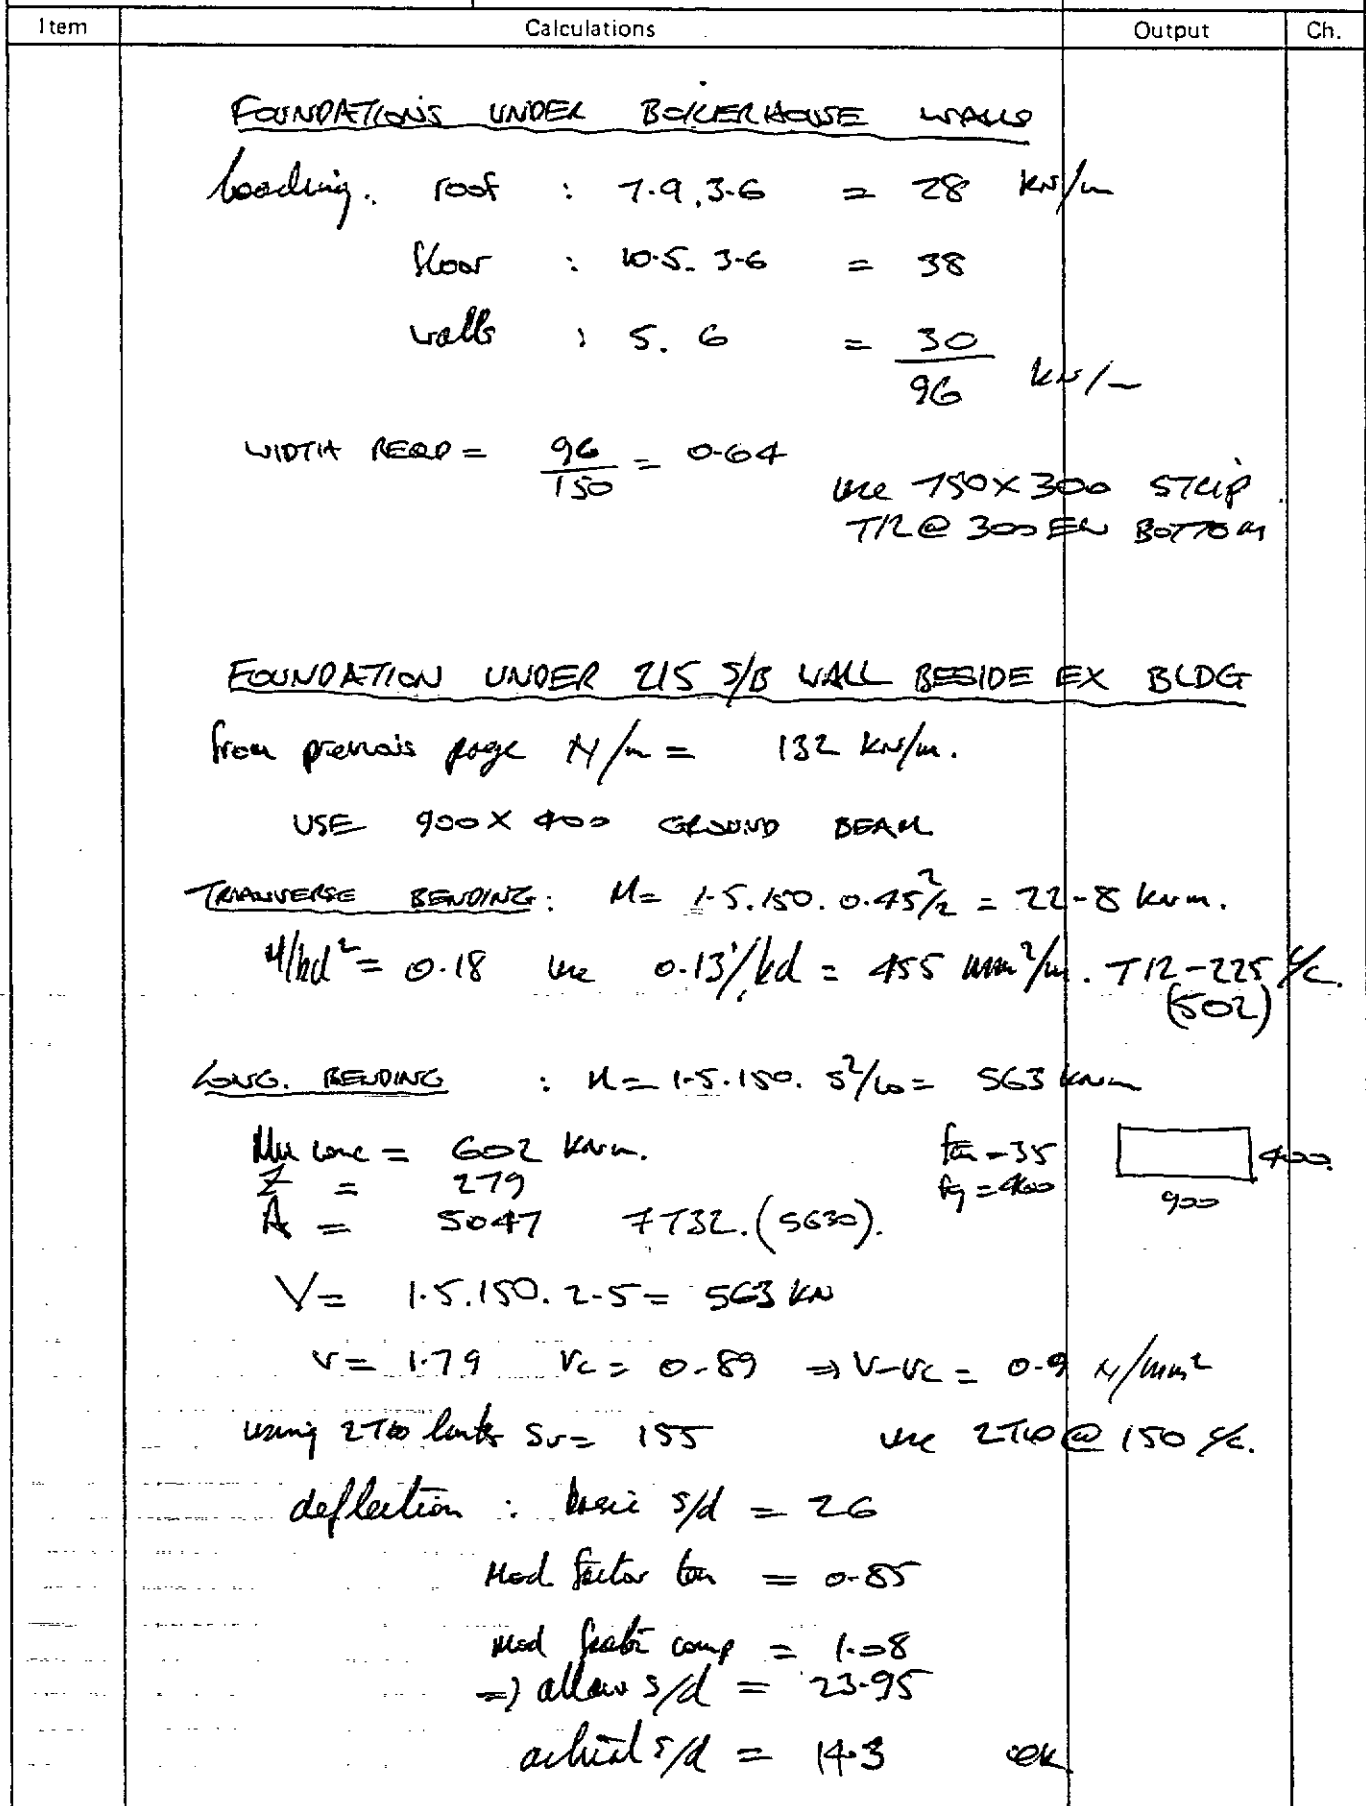 Item Calculations Output Ch.
FOUNDATIONS UNDER BOILERHOUSE WALLS
loading. roof : 7.9.3.6 = 28 kN/m
floor : 10.5.3.6 = 38
walls : 5.6 = 30
96 kN/m
WIDTH REQD = 96/150 = 0.64
use 750 x 300 STRIP
T12 @ 300 EW BOTTOM
FOUNDATION UNDER 215 S/B WALL BESIDE EX BLDG
from previous page N/m = 132 kN/m.
USE 900 X 400 GROUND BEAM
TRANVERSE BENDING: M = 1.5.150.0.45²/2 = 22.8 kNm.
M/bd² = 0.18 use 0.13%bd = 455 mm²/m. T12-225 c/c.
(502)
LONG. BENDING : M = 1.5.150.5²/10 = 563 kNm
Mu conc = 602 kNm. fcu = 35 400
Z = 279 fy = 460
900
A = 5047 7T32.(5630).
V = 1.5.150.2.5 = 563 kN
v = 1.79 vc = 0.89 ⇒ v-vc = 0.9 N/mm²
using 2T10 links Sv = 155 use 2T10 @ 150 c/c.
deflection : basic s/d = 26
Mod factor ten = 0.85
Mod factor comp = 1.08
⇒ allow s/d = 23.95
actual s/d = 14.3 ok